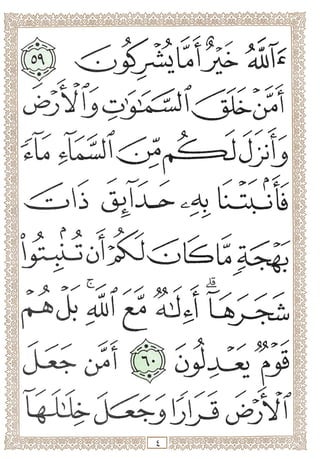 ءَآللَّهُ خَيْرٌ أَمَّا يُشْرِكُونَ ٥٩
أَمَّنْ خَلَقَ ٱلسَّمَـٰوَٰتِ وَٱلْأَرْضَ
وَأَنزَلَ لَكُم مِّنَ ٱلسَّمَآءِ مَآءً
فَأَنۢبَتْنَا بِهِۦ حَدَآئِقَ ذَاتَ
بَهْجَةٍ مَّا كَانَ لَكُمْ أَن تُنۢبِتُوا۟
شَجَرَهَآ ۗ أَءِلَـٰهٌ مَّعَ ٱللَّهِ ۚ بَلْ هُمْ
قَوْمٌ يَعْدِلُونَ ٦٠ أَمَّن جَعَلَ
ٱلْأَرْضَ قَرَارًا وَجَعَلَ خِلَـٰلَهَآ
٤